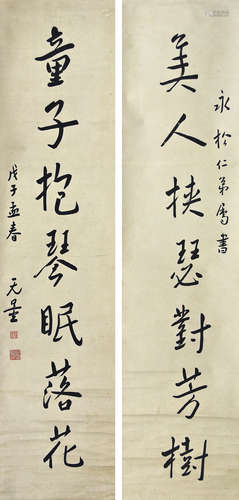 永於仁弟属書
美人挟瑟對芳樹
童子抱琴眠落花
戊子孟春
无量